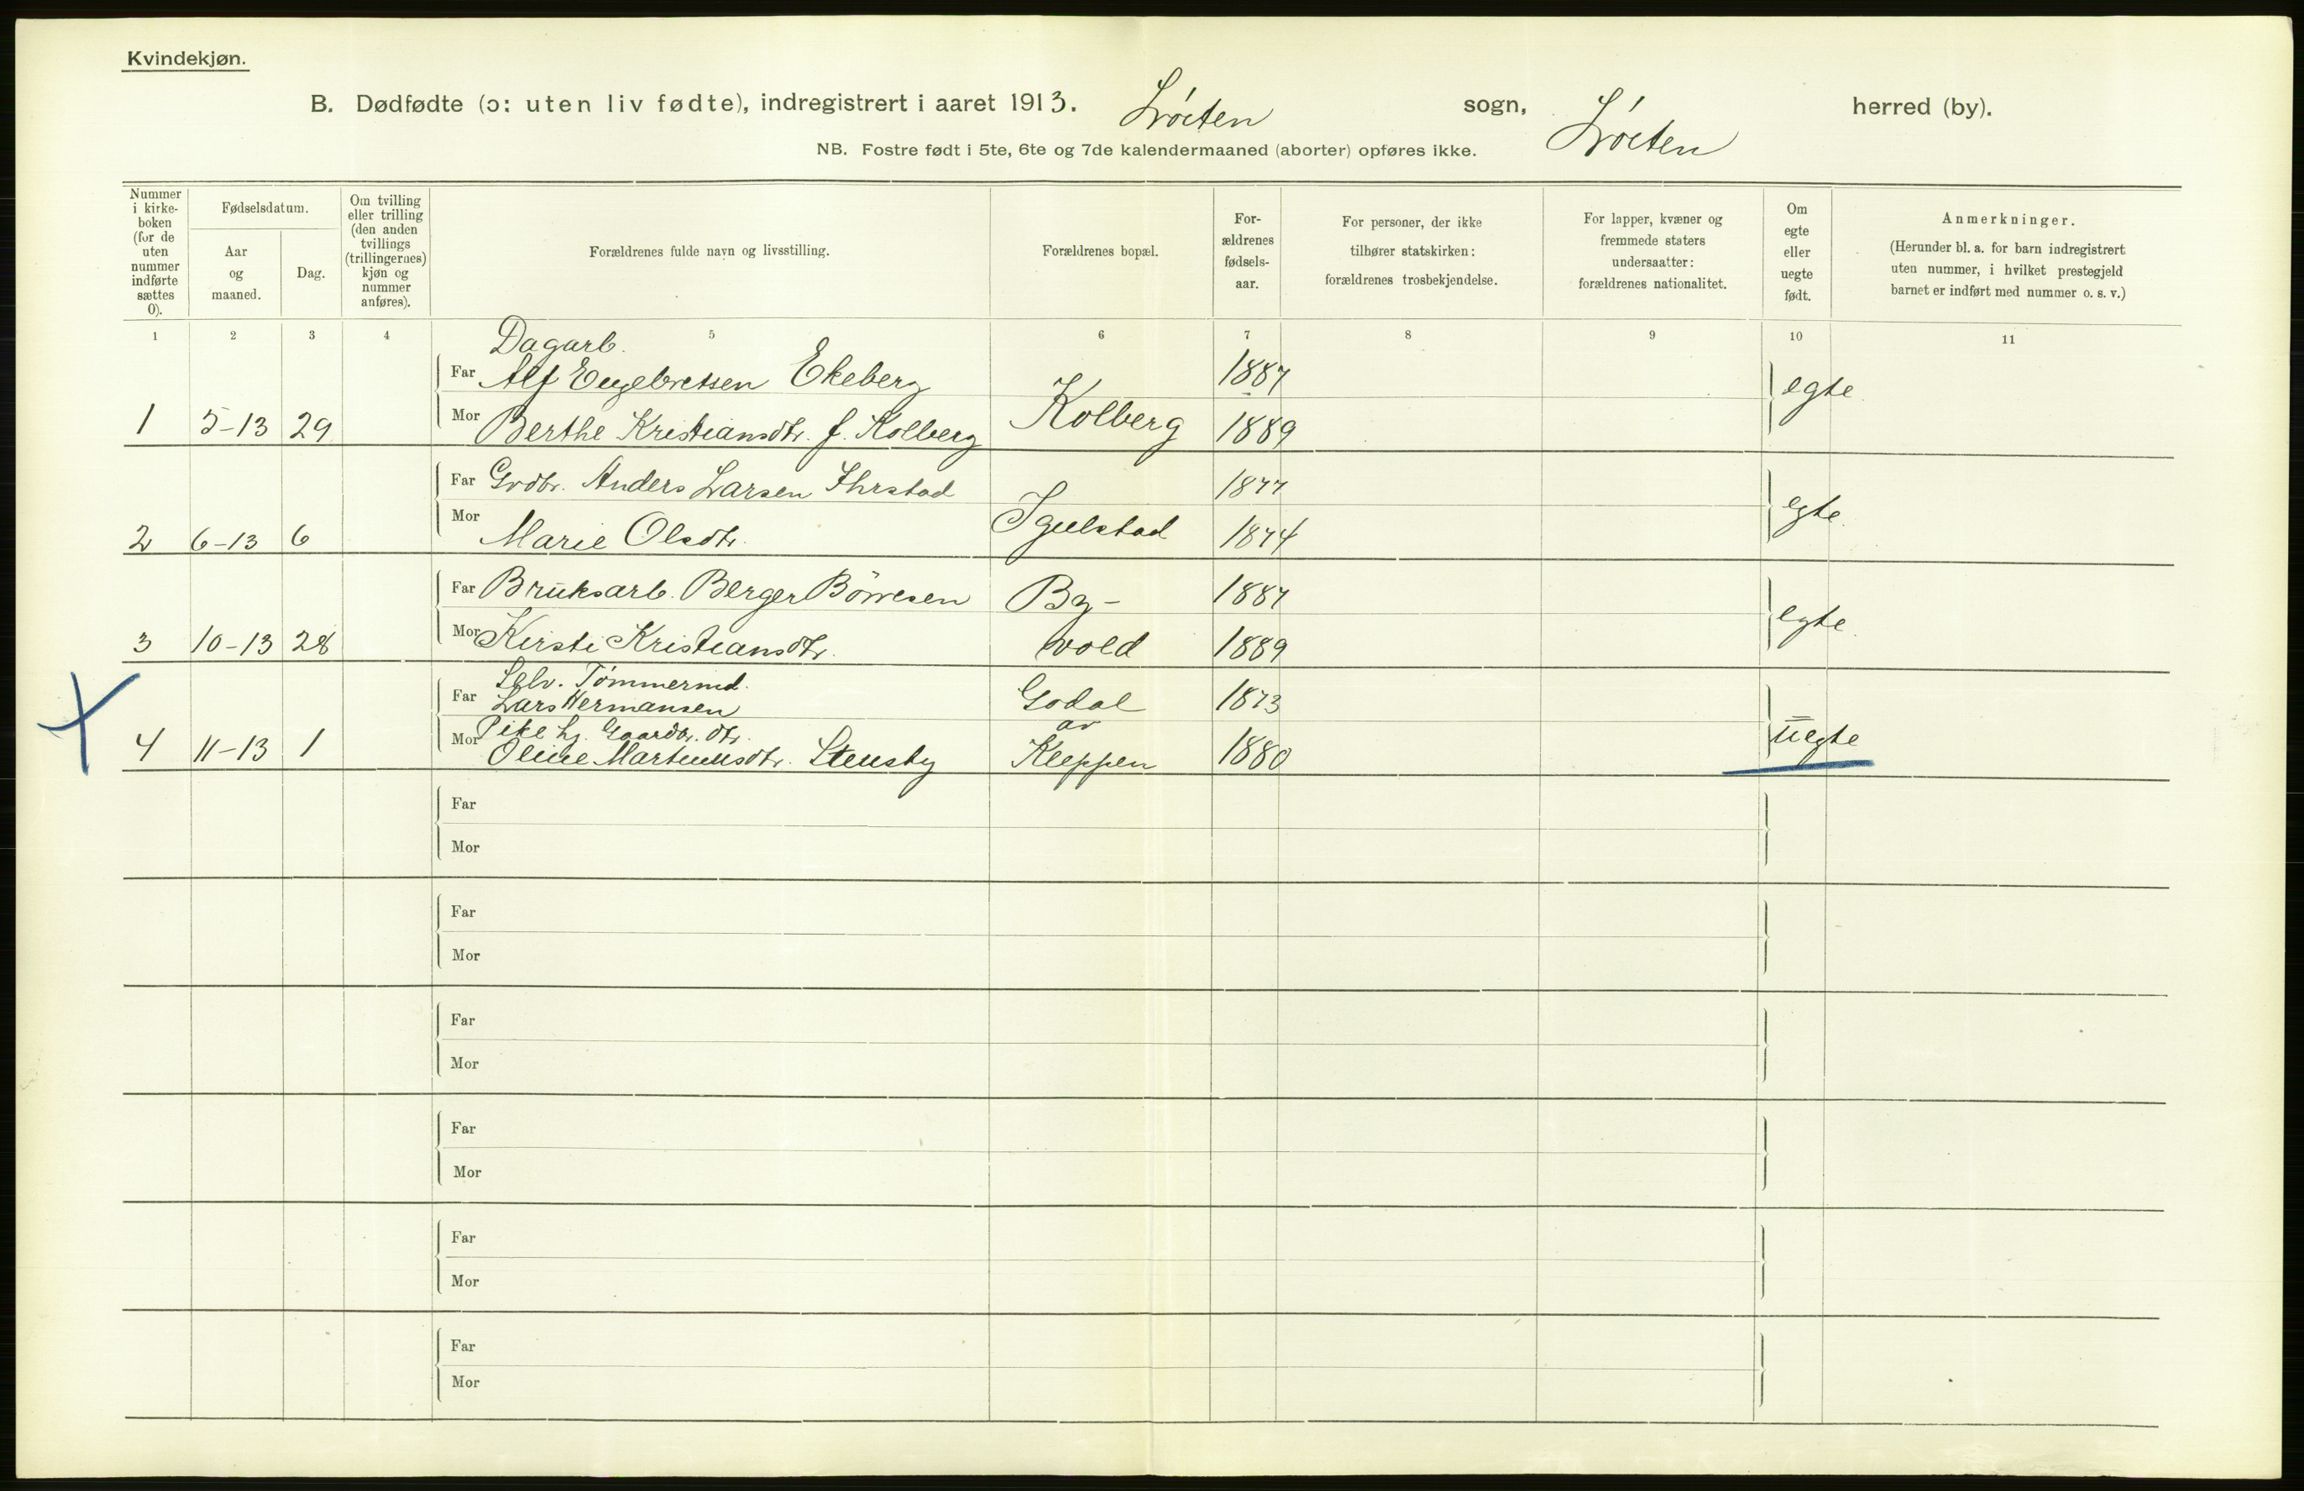 Kvindekjøn.
B. Dødfødte (ɔ: uten liv fødte), indregistrert i aaret 1913. Löiten sogn, Löiten herred (by).
NB. Fostre født i 5te, 6te og 7de kalendermaaned (aborter) opføres ikke.
Nummer
i kirke-
boken
(for de
uten
nummer
indførte
sættes
0).
Fødselsdatum.
Aar
og
maaned.
Dag.
Om tvilling
eller trilling
(den anden
tvillings
(trillingernes)
kjøn og
nummer
anføres).
Forældrenes fulde navn og livsstilling.
Forældrenes bopæl.
For-
ældrenes
fødsels-
aar.
For personer, der ikke
tilhører statskirken:
forældrenes trosbekjendelse.
For lapper, kvæner og
fremmede staters
undersaatter:
forældrenes nationalitet.
Om
egte
eller
uegte
født.
Anmerkninger.
(Herunder bl. a. for barn indregistrert
uten nummer, i hvilket prestegjeld
barnet er indført med nummer o. s. v.)
1 2 3 4 5 6 7 8 9 10 11
Dagarb.
Far Alf Engebretsen Ekeberg 1887
1 5-13 29 Mor Berthe Kristiansdtr. f. Kolberg Kolberg 1889 egte
Far Grdbr. Anders Larsen Ihrstad 1877
2 6-13 6 Mor Marie Olsdtr. Igulstad 1874 egte.
Far Bruksarb. Berger Börresen By- 1887
3 10-13 28 Mor Kirsti Kristiansdtr. vold 1889 egte.
Selv. Tömmermd.
Far Lars Hermansen Godal 1873
Pike hj. Gaardbr. dtr. av
4 11-13 1 Mor Oline Martinusdtr. Stensby Kleppen 1880 uegte
Far
Mor
Far
Mor
Far
Mor
Far
Mor
Far
Mor
Far
Mor